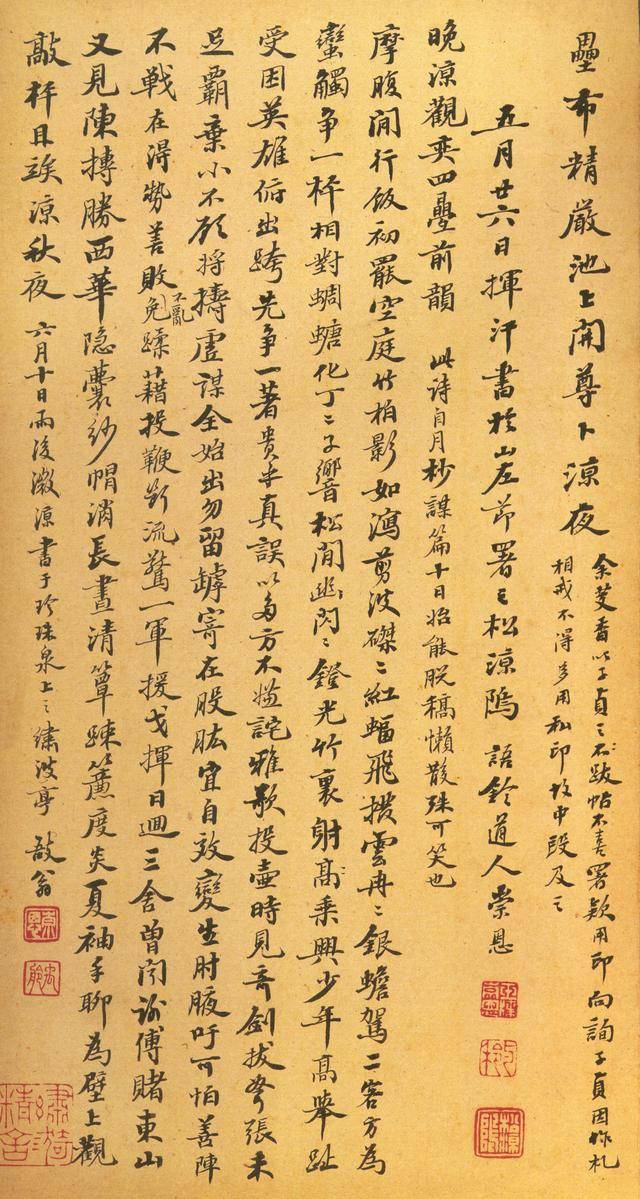 壘布精嚴池上開尊卜涼夜
余芰香以子貞之不跋帖不喜署款用印向詢子貞因作札
相戒不得多用私印故中段及之
五月廿六日揮汗書於山左節署之松涼隖 語鈴道人崇恩
晚涼觀奕四疊前韻 此詩自月杪謀篇十日始能脫稿懶散殊可笑也
摩腹閒行飯初罷空庭竹柏影如瀉剪波磔磔紅蝠飛撥雲冉冉銀蟾駕二客方為
蠻觸爭一枰相對蜩螗化丁丁子響松閒幽閃閃鐙光竹裏射高乘興少年高舉趾
受困英雄俯出跨先爭一著貴半真誤以多方不嫌詫雅歌投壺時見奇劍拔弩張未
足霸棄小不顧將擣虛謀全始出勿留罅寄在股肱宜自效變生肘腋吁可怕善陣
不戰在得勢善敗不亂免蹂藉投鞭斷流驚一軍援戈揮日迴三舍曾聞謝傅賭東山
又見陳摶勝西華隱囊紗帽消長晝清簟疎簾度炎夏袖手聊為壁上觀
敲枰且竢涼秋夜 六月十日雨後澂涼書于珍珠泉上之繡波亭 敔翁